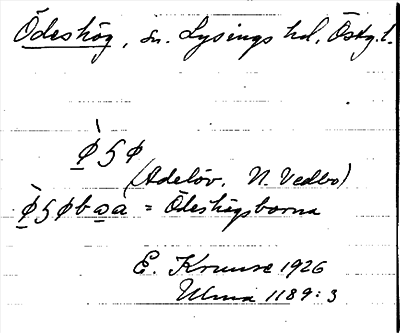 Ödeshög, sn. Lysings hd, Östg.l.
ø̠̀ʒø
(Adelöv, N. Vedbo)
ø̠̀ʒøba̠a = Ödeshögsborna
E. Kruuse 1926
Ulma 1189:3